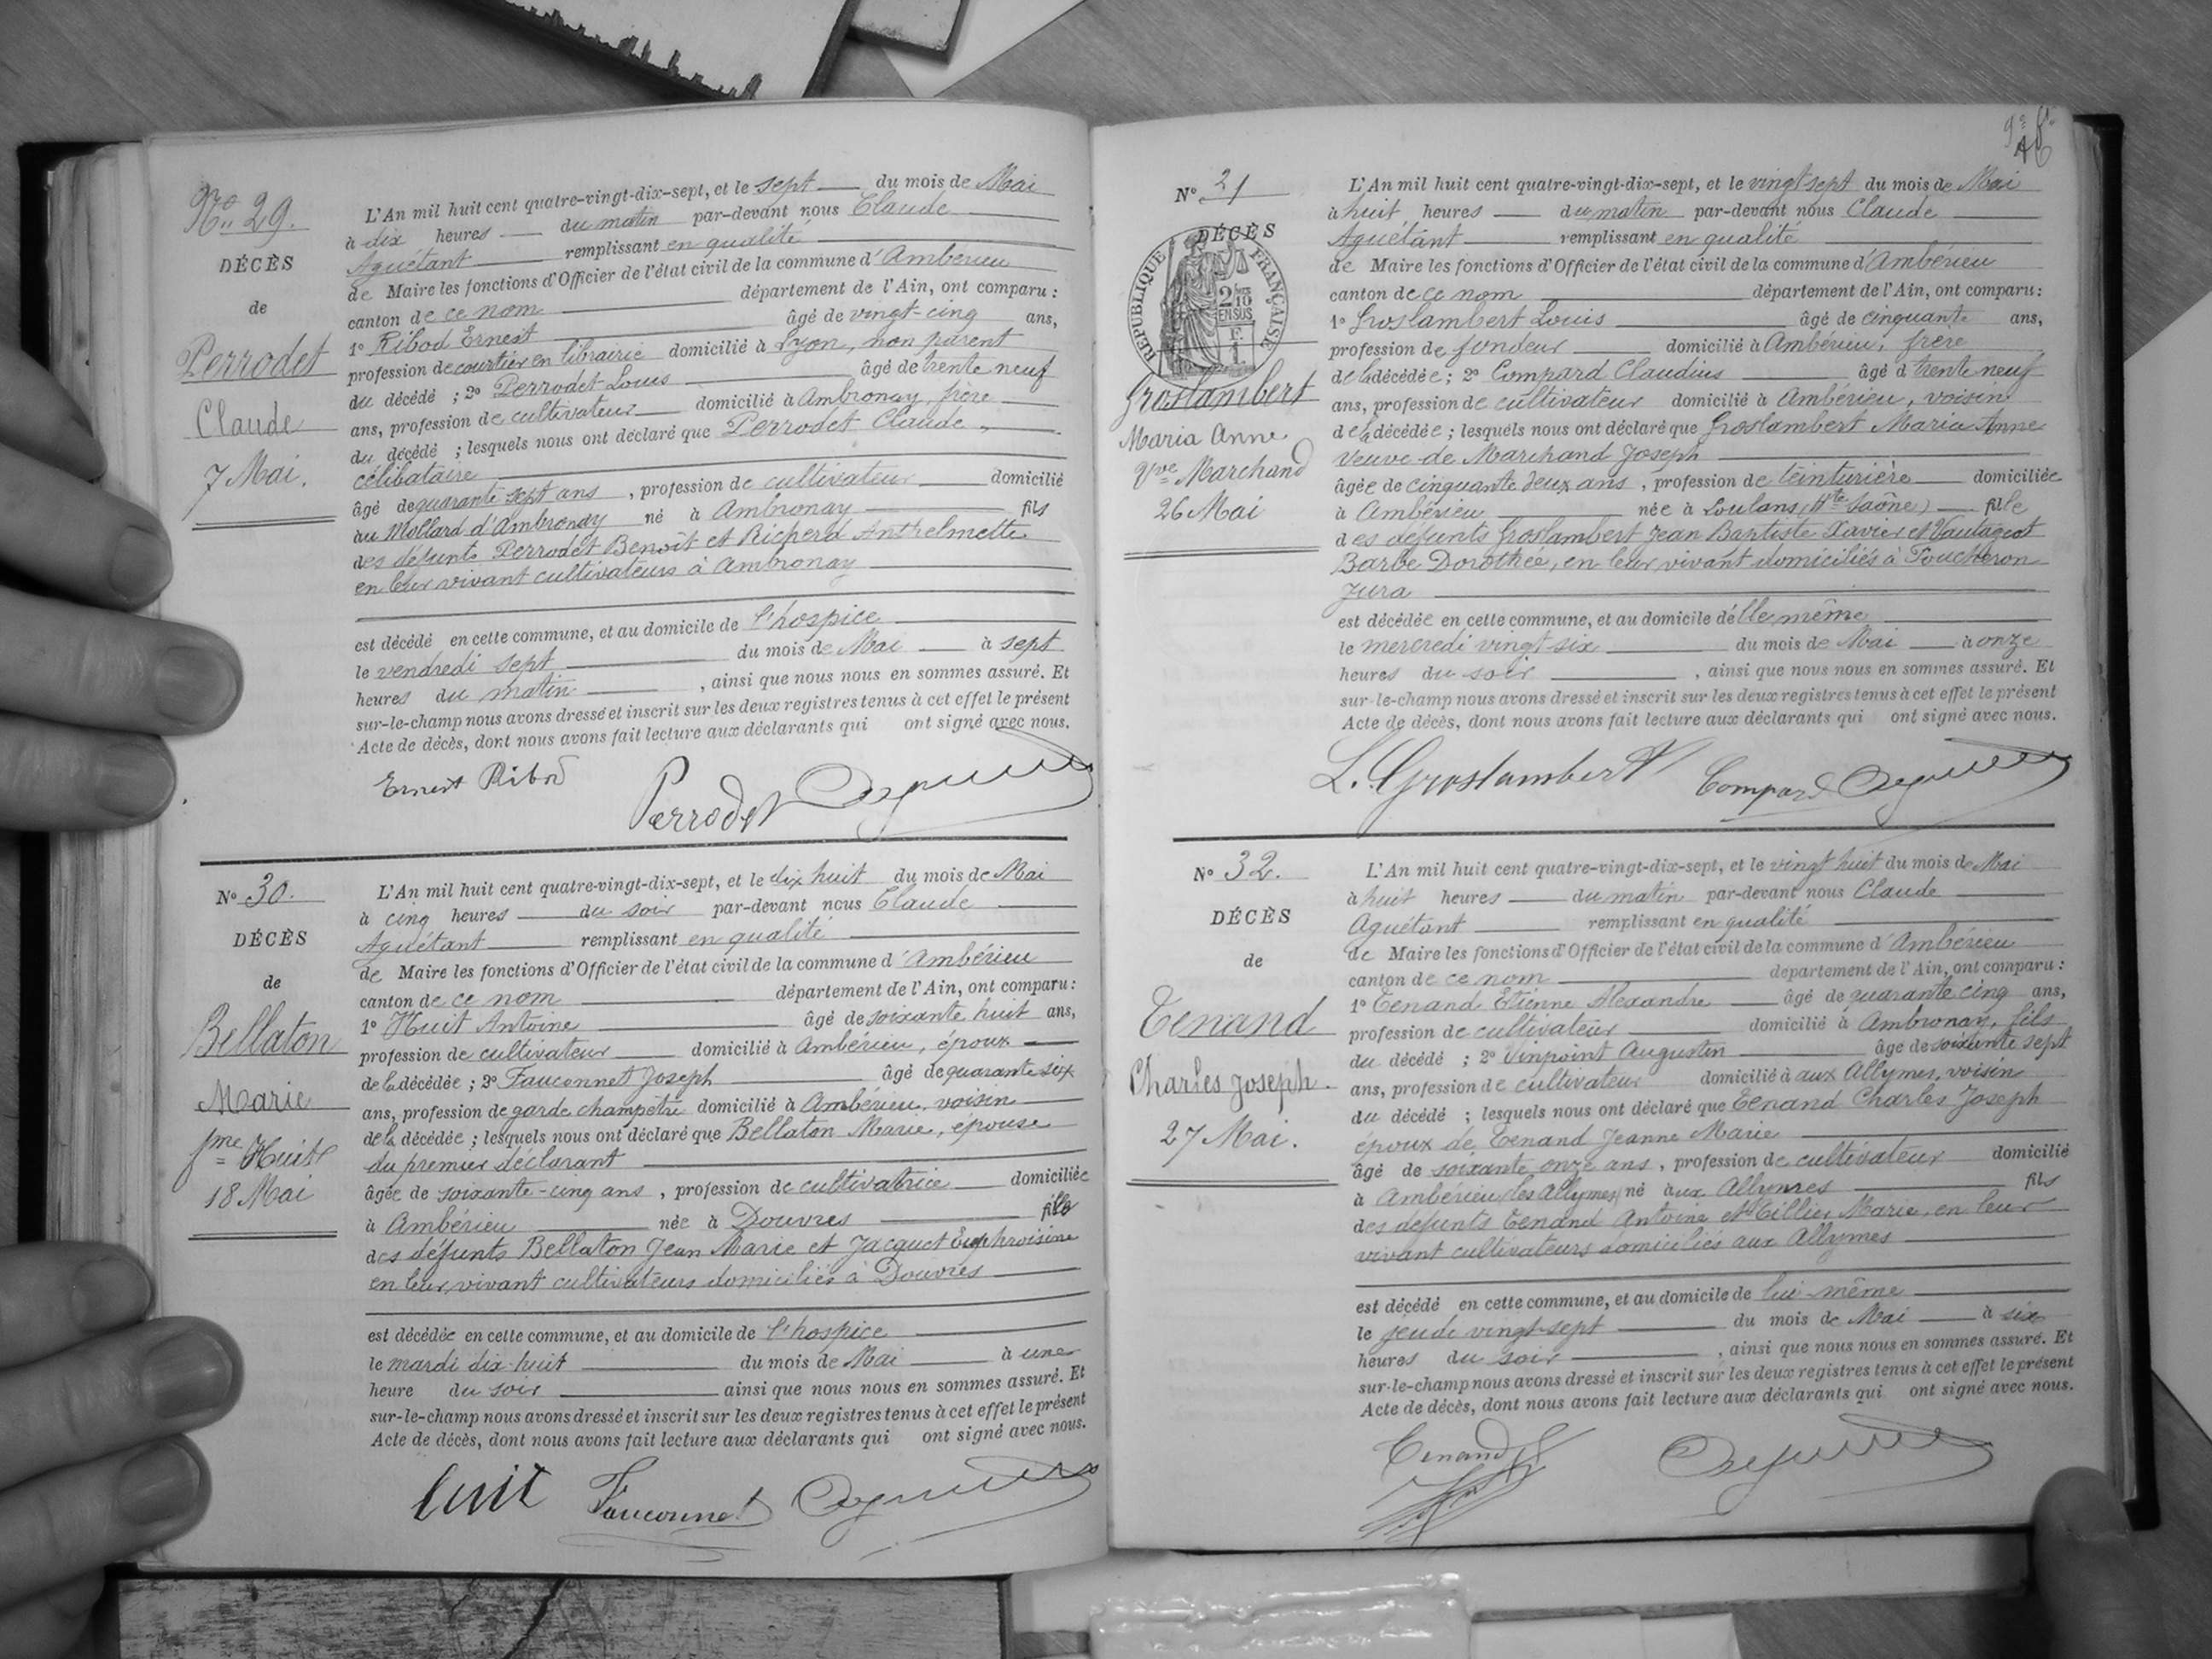 Nro 29.
DÉCÈS
de
Perrodet
Claude
7 Mai.
L'An mil huit cent quatre-vingt-dix-sept, et le sept du mois de Mai
à dix heures du matin par-devant nous Claude
Aguétant remplissant en qualité
de Maire les fonctions d'Officier de l'état civil de la commune d'Ambérieu
canton de ce nom département de l'Ain, ont comparu :
1º Ribod Ernest âgé de vingt-cinq ans,
profession de courtier en librairie domicilié à Lyon, non parent
du décédé ; 2º Perrodet Louis âgé de trente neuf
ans, profession de cultivateur domicilié à Ambronay, frère
du décédé ; lesquels nous ont déclaré que Perrodet Claude,
célibataire
âgé de quarante sept ans, profession de cultivateur domicilié
au Mollard d'Ambronay né à Ambronay fils
des défunts Perrodet Benoît et Richerd Anthelmette
en leur vivant cultivateurs à Ambronay
est décédé en cette commune, et au domicile de l'hospice
le vendredi sept du mois de Mai à sept
heures du matin, ainsi que nous nous en sommes assuré. Et
sur-le-champ nous avons dressé et inscrit sur les deux registres tenus à cet effet le présent
Acte de décès, dont nous avons fait lecture aux déclarants qui ont signé avec nous.
Ernest Ribod Perrodet
Nº 30.
DÉCÈS
de
Bellaton
Marie
fme Huit
18 Mai
L'An mil huit cent quatre-vingt-dix-sept, et le dix huit du mois de Mai
à cinq heures du soir par-devant nous Claude
Aguétant remplissant en qualité
de Maire les fonctions d'Officier de l'état civil de la commune d'Ambérieu
canton de ce nom département de l'Ain, ont comparu :
1º Huit Antoine âgé de soixante huit ans,
profession de cultivateur domicilié à Ambérieu, époux
de la décédée ; 2º Fauconnet Joseph âgé de quarante six
ans, profession de garde champêtre domicilié à Ambérieu, voisin
de la décédée ; lesquels nous ont déclaré que Bellaton Marie, épouse
du premier déclarant
âgée de soixante-cinq ans, profession de cultivatrice domiciliée
à Ambérieu née à Douvres fille
des défunts Bellaton Jean Marie et Jacquet Euphroisine
en leur vivant cultivateurs domiciliés à Douvres
est décédée en cette commune, et au domicile de l'hospice
le mardi dix-huit du mois de Mai à une
heure du soir ainsi que nous nous en sommes assuré. Et
sur-le-champ nous avons dressé et inscrit sur les deux registres tenus à cet effet le présent
Acte de décès, dont nous avons fait lecture aux déclarants qui ont signé avec nous.
huit Fauconnet
Nº 21
DÉCÈS
RÉPUBLIQUE FRANÇAISE
2/10 EN SUS
F. 1.
Groslambert
Maria Anne
Vve Marchand
26 Mai
L'An mil huit cent quatre-vingt-dix-sept, et le vingt sept du mois de Mai
à huit heures du matin par-devant nous Claude
Aguétant remplissant en qualité
de Maire les fonctions d'Officier de l'état civil de la commune d'Ambérieu
canton de ce nom département de l'Ain, ont comparu :
1º Groslambert Louis âgé de cinquante ans,
profession de fondeur domicilié à Ambérieu, frère
de la décédée ; 2º Compard Claudius âgé d trente neuf
ans, profession de cultivateur domicilié à Ambérieu, voisin
de la décédée ; lesquels nous ont déclaré que Groslambert Maria Anne
veuve de Marchand Joseph
âgée de cinquante deux ans, profession de teinturière domiciliée
à Ambérieu née à Loulans (Hte Saône) fille
des défunts Groslambert Jean Baptiste Xavier et Vautageot
Barbe Dorothée, en leur vivant domiciliés à Foucheron
Jura
est décédée en cette commune, et au domicile d'elle même
le mercredi vingt six du mois de Mai à onze
heures du soir, ainsi que nous nous en sommes assuré. Et
sur-le-champ nous avons dressé et inscrit sur les deux registres tenus à cet effet le présent
Acte de décès, dont nous avons fait lecture aux déclarants qui ont signé avec nous.
L. Groslambert Compard
Nº 32.
DÉCÈS
de
Tenand
Charles Joseph.
27 Mai.
L'An mil huit cent quatre-vingt-dix-sept, et le vingt huit du mois de Mai
à huit heures du matin par-devant nous Claude
Aguétant remplissant en qualité
de Maire les fonctions d'Officier de l'état civil de la commune d'Ambérieu
canton de ce nom département de l'Ain, ont comparu :
1º Tenand Etienne Alexandre âgé de quarante cinq ans,
profession de cultivateur domicilié à Ambronay, fils
du décédé ; 2º Vinpoint Augustin âgé de soixante sept
ans, profession de cultivateur domicilié à aux Allymes, voisin
du décédé ; lesquels nous ont déclaré que Tenand Charles Joseph
époux de Tenand Jeanne Marie
âgé de soixante onze ans, profession de cultivateur domicilié
à Ambérieu (les Allymes) né aux Allymes fils
des défunts Tenand Antoine et Tillier Marie, en leur
vivant cultivateurs domiciliés aux Allymes
est décédé en cette commune, et au domicile de lui-même
le jeudi vingt-sept du mois de Mai à six
heures du soir, ainsi que nous nous en sommes assuré. Et
sur-le-champ nous avons dressé et inscrit sur les deux registres tenus à cet effet le présent
Acte de décès, dont nous avons fait lecture aux déclarants qui ont signé avec nous.
Tenand